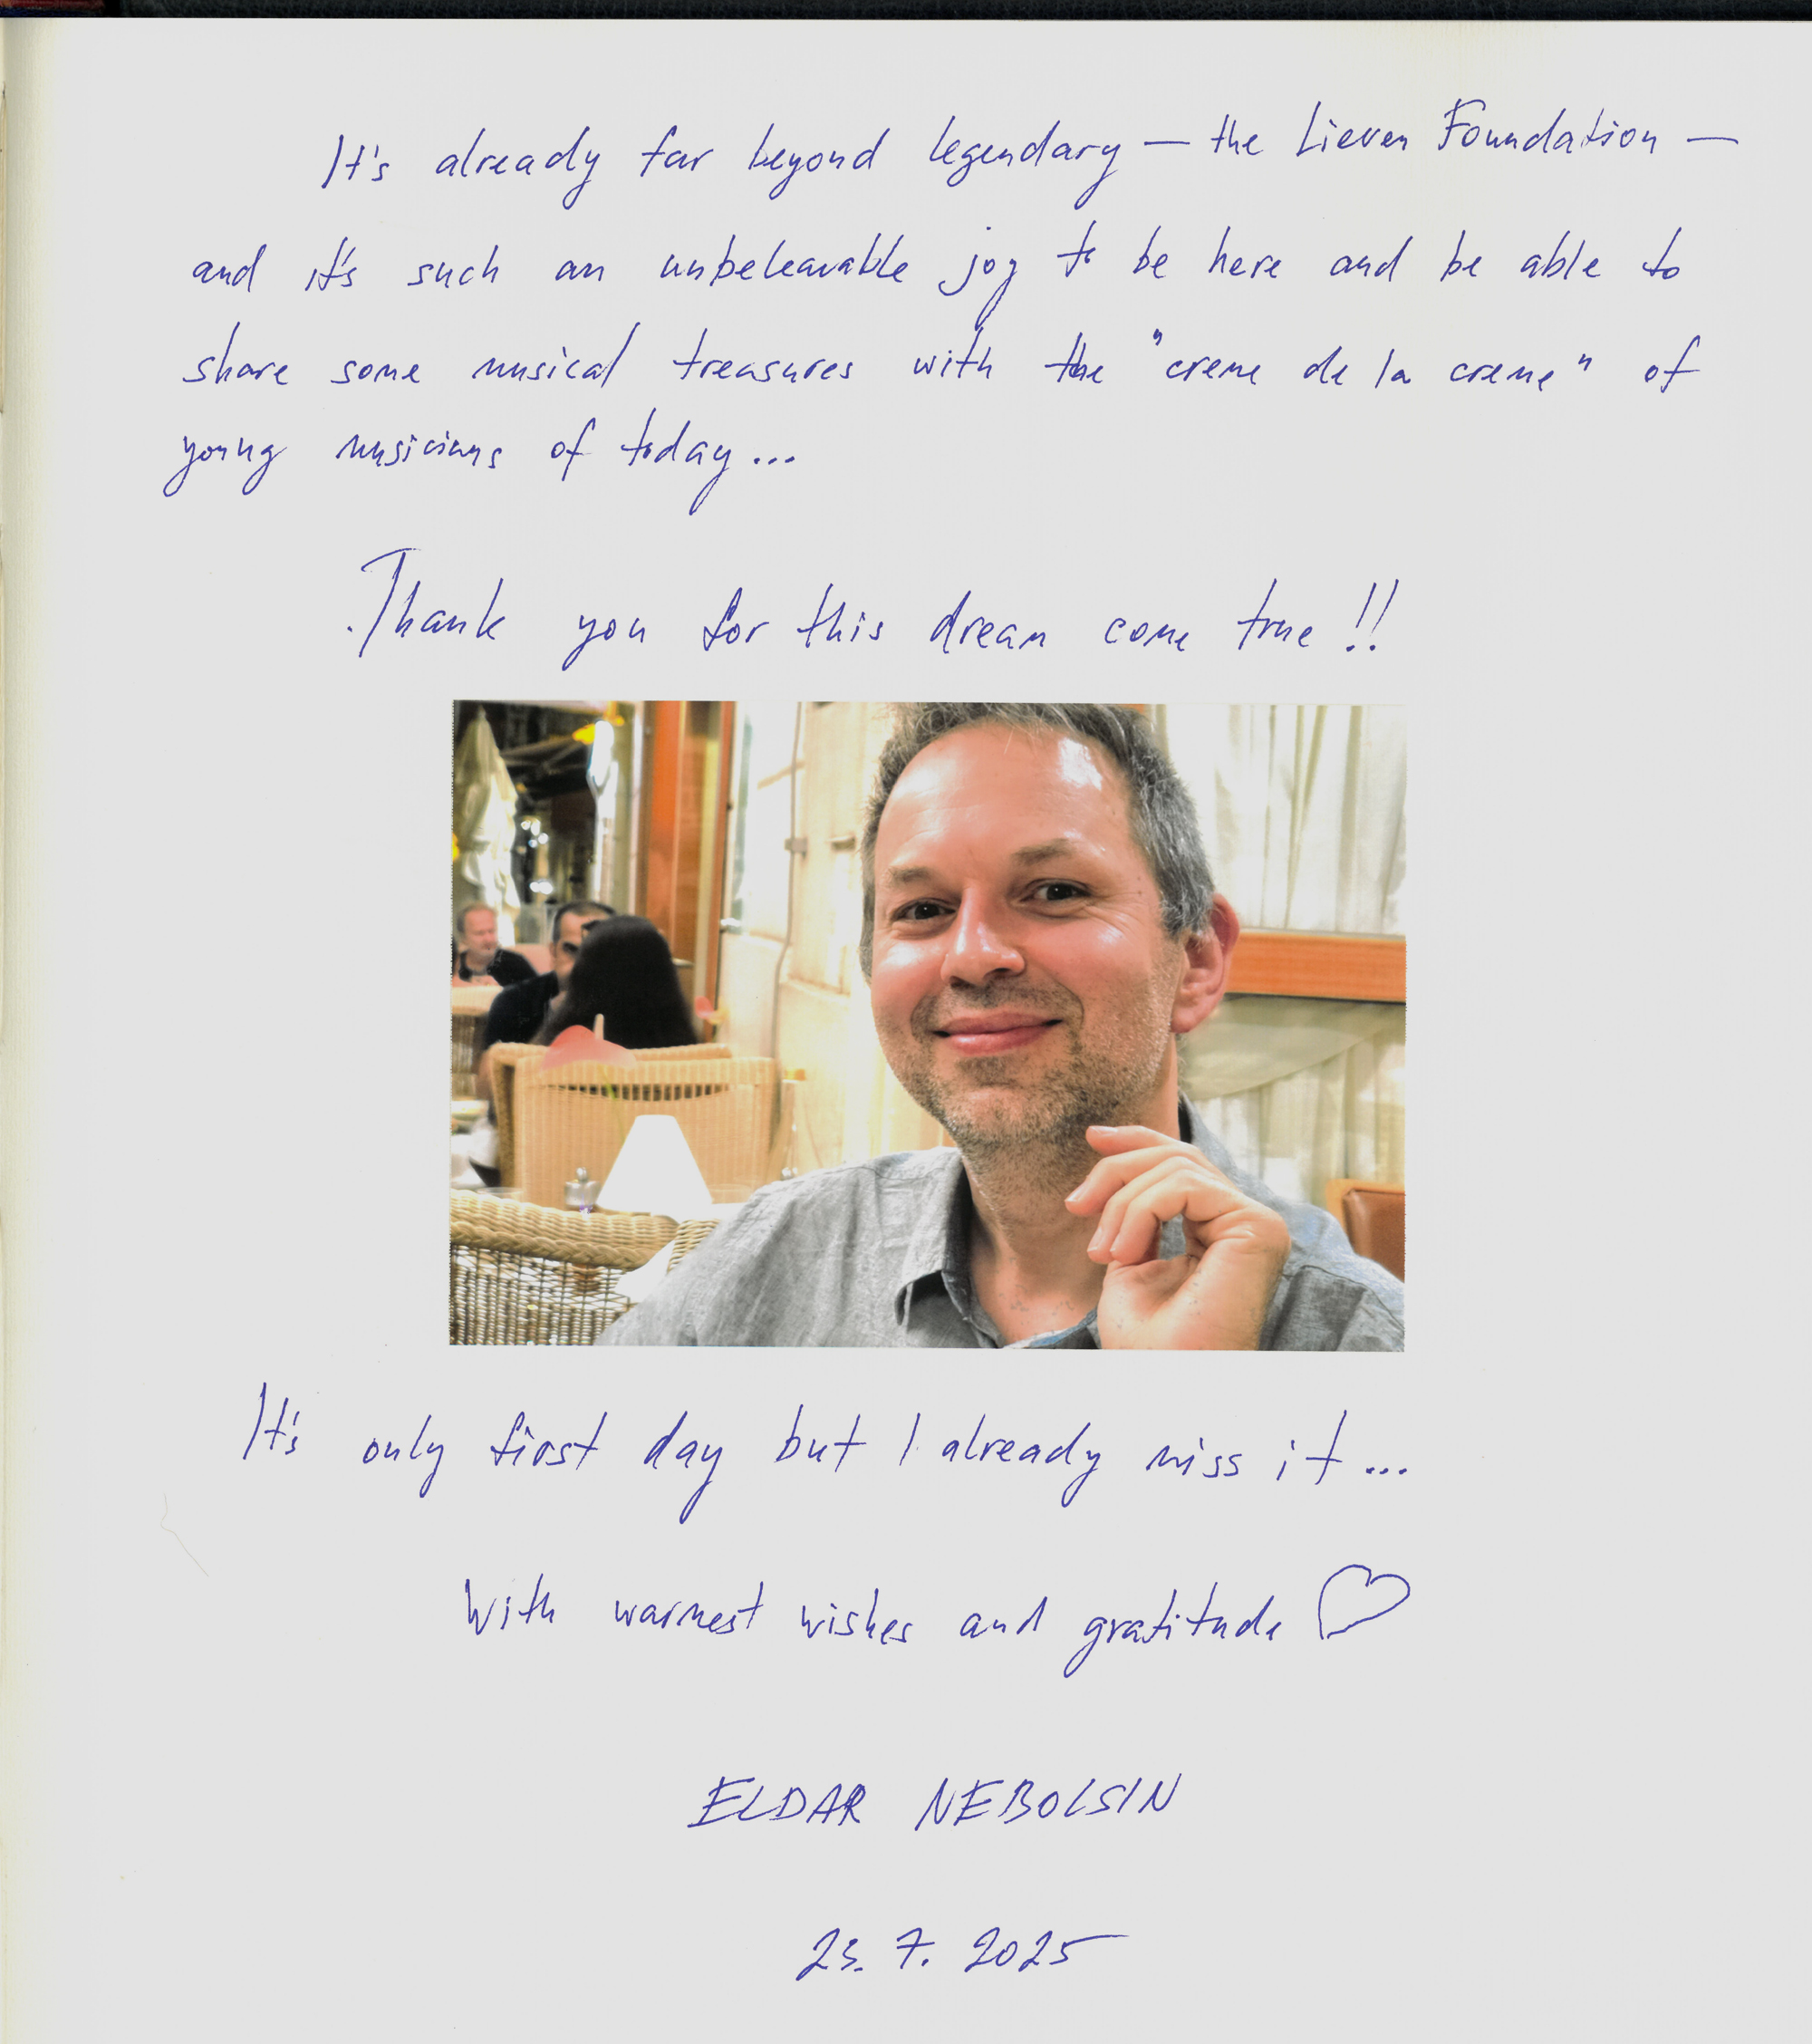 It's already far beyond legendary — the Lieven Foundation —
and it's such an unbeleavable joy to be here and be able to
share some musical treasures with the "creme de la creme" of
young musicians of today...
Thank you for this dream come true!!
It's only first day but I already miss it...
With warmest wishes and gratitude ♡
ELDAR NEBOLSIN
23. 7. 2025